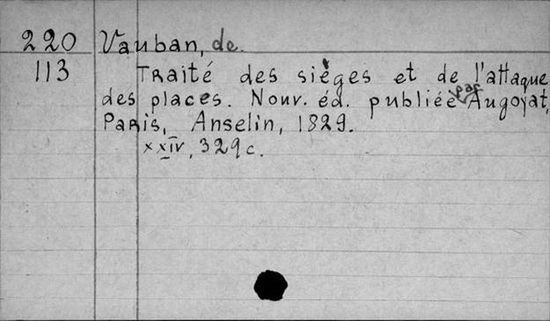 220 Vauban, de.
113 Traité des sièges et de l'attaque
des places. Nouv. éd. publiée par Augoyat,
Paris, Anselin, 1829.
xxiv, 329 c.